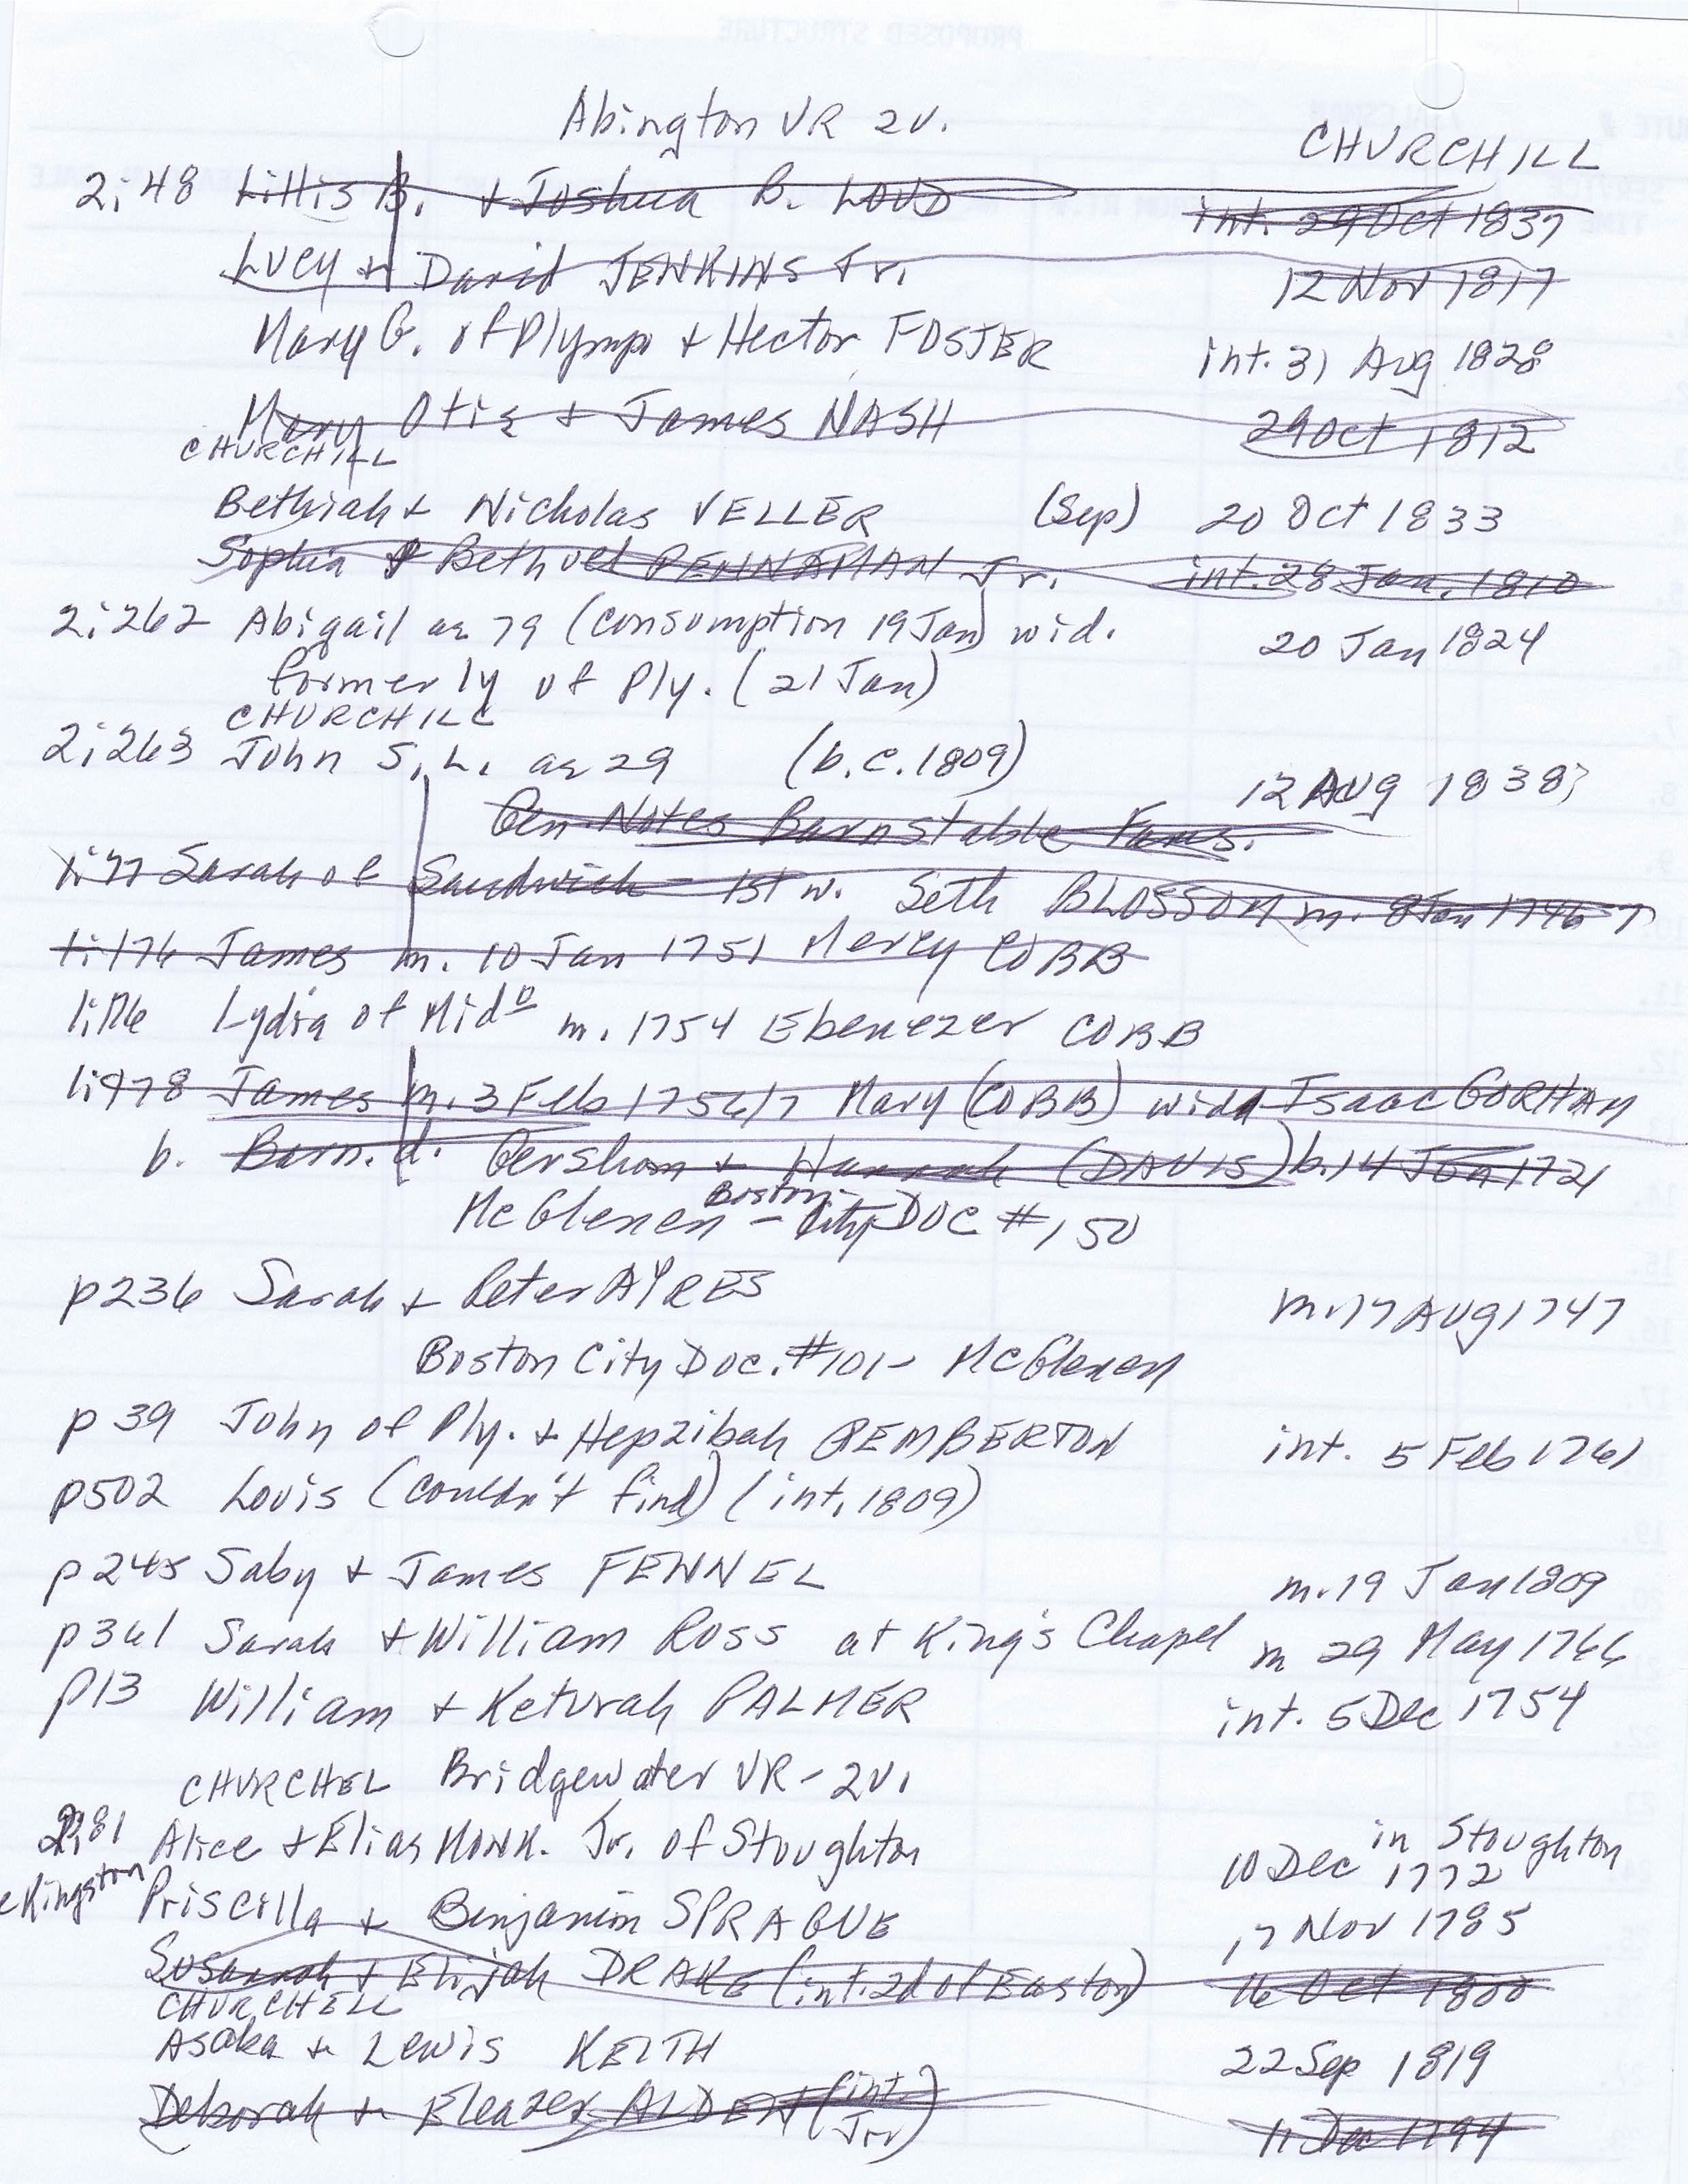 Abington VR 2v.
CHURCHILL
2:48 Littis B. + Joshua B. LOUD int. 29 Oct 1837
Lucy + David JENKINS Jr. 12 Nov 1817
Mary G. of Plymp + Hector FOSTER int. 31 Aug 1828
Mary Otis + James NASH 29 Oct 1812
CHURCHILL
Bethiah + Nicholas VELLER (Sep) 20 Oct 1833
Sophia + Bethuel PENNAMAN Jr. int. 28 Jan. 1810
2:262 Abigail ae 79 (consumption 19 Jan) wid. 20 Jan 1824
formerly of Ply. (21 Jan)
CHURCHILL
2:263 John S. L. ae 29 (b.c. 1809) 12 Aug 1838
Gen. Notes Barnstable Fams.
1:77 Sarah of Sandwich - 1st w. Seth BLOSSOM m. 8 Jan 1746 7
1:176 James m. 10 Jan 1751 Mercy COBB
1:176 Lydia of Mid° m. 1754 Ebenezer COBB
1:478 James m. 3 Feb 1756/7 Mary (COBB) wid Isaac GORHAM
b. Barn. d. Gershom + Hannah (DAVIS) b. 14 Jun 1721
McGlenen - Boston City DOC #150
p236 Sarah + Peter AYRES m. 17 Aug 1747
Boston City Doc. #101 - McGlenen
p 39 John of Ply. + Hepzibah PEMBERTON int. 5 Feb 1761
p502 Lovis (couldn't find) (int. 1809)
p 245 Saby + James FENNEL m. 19 Jan 1809
p 361 Sarah + William Ross at King's Chapel m 29 May 1766
p13 William + Keturah PALMER int. 5 Dec 1754
CHURCHEL Bridgewater VR - 2v.
2:81 Alice + Elias MONK. Jr. of Stoughton 10 Dec in Stoughton 1772
Kingston Priscilla + Benjamin SPRAGUE 17 Nov 1785
Susannah + Elijah DRAKE (int. 2d of Easton) 16 Oct 1800
CHURCHELL
Asaba + Lewis KEITH 22 Sep 1819
Deborah + Eleazer ALDEN (int. Jr.) 11 Dec 1794